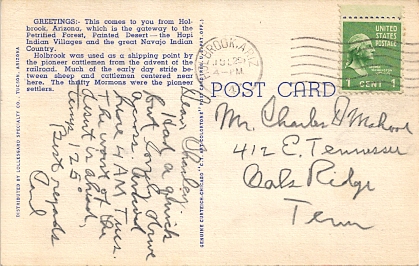 GREETINGS:- This comes to you from Hol-
brook, Arizona, which is the gateway to the
Petrified Forest, Painted Desert — the Hopi
Indian Villages and the great Navajo Indian
Country.
Holbrook was used as a shipping point by
the pioneer cattlemen from the advent of the
railroad. Much of the early day strife be-
tween sheep and cattlemen centered near
here. The thrifty Mormons were the pioneer
settlers.
DISTRIBUTED BY LOLLESGARD SPECIALTY CO., TUCSON, ARIZONA
Dear Charley,
Had a quick
but long drive
across. Arrived
here 4 AM Tues.
The worst of the
desert is ahead,
temp 125°
Best regards
Carl
GENUINE CURTEICH-CHICAGO
HOLBROOK, ARIZ.
JUL 25
4-PM
POST CARD
UNITED
STATES
POSTAGE
1 CENT 1
Mr. Charles D. McHood
412 E. Tennessee
Oak Ridge
Tenn